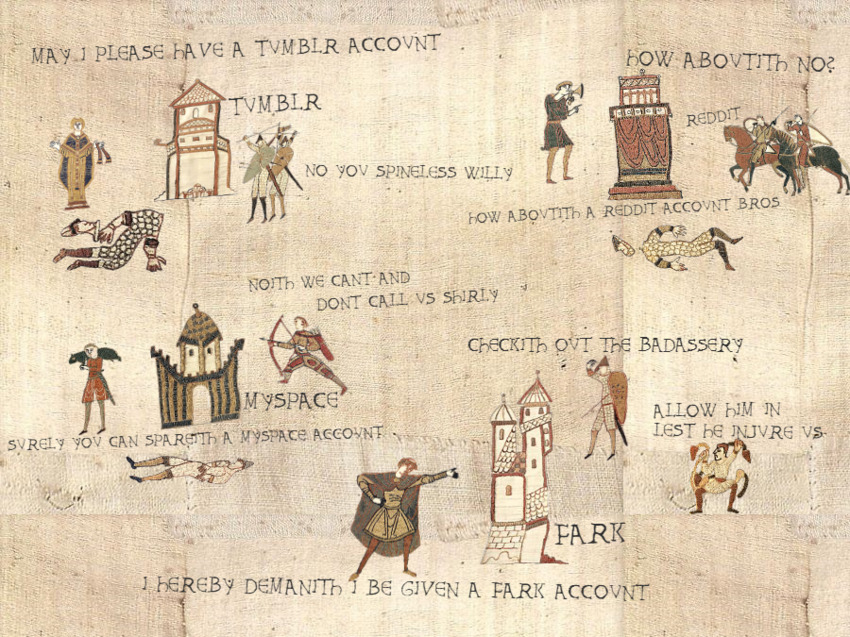 MAY I PLEASE HAVE A TVMBLR ACCOVNT
TVMBLR
NO YOV SPINELESS WILLY
HOW ABOVTITH NO?
REDDIT
HOW ABOVTITH A REDDIT ACCOVNT BROS
NOITH WE CANT AND
DONT CALL VS SHIRLY
MYSPACE
SVRELY YOV CAN SPAREITH A MYSPACE ACCOVNT
CHECKITH OVT THE BADASSERY
ALLOW HIM IN
LEST HE INJVRE VS.
FARK
I HEREBY DEMANITH I BE GIVEN A FARK ACCOVNT